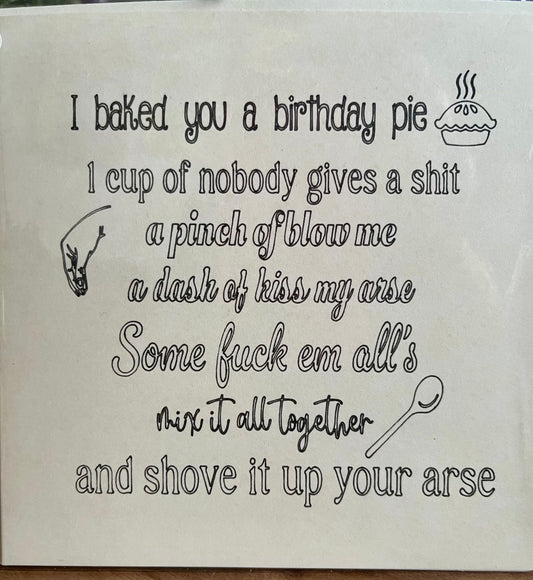 I baked you a birthday pie
1 cup of nobody gives a shit
a pinch of blow me
a dash of kiss my arse
Some fuck em all's
mix it all together
and shove it up your arse